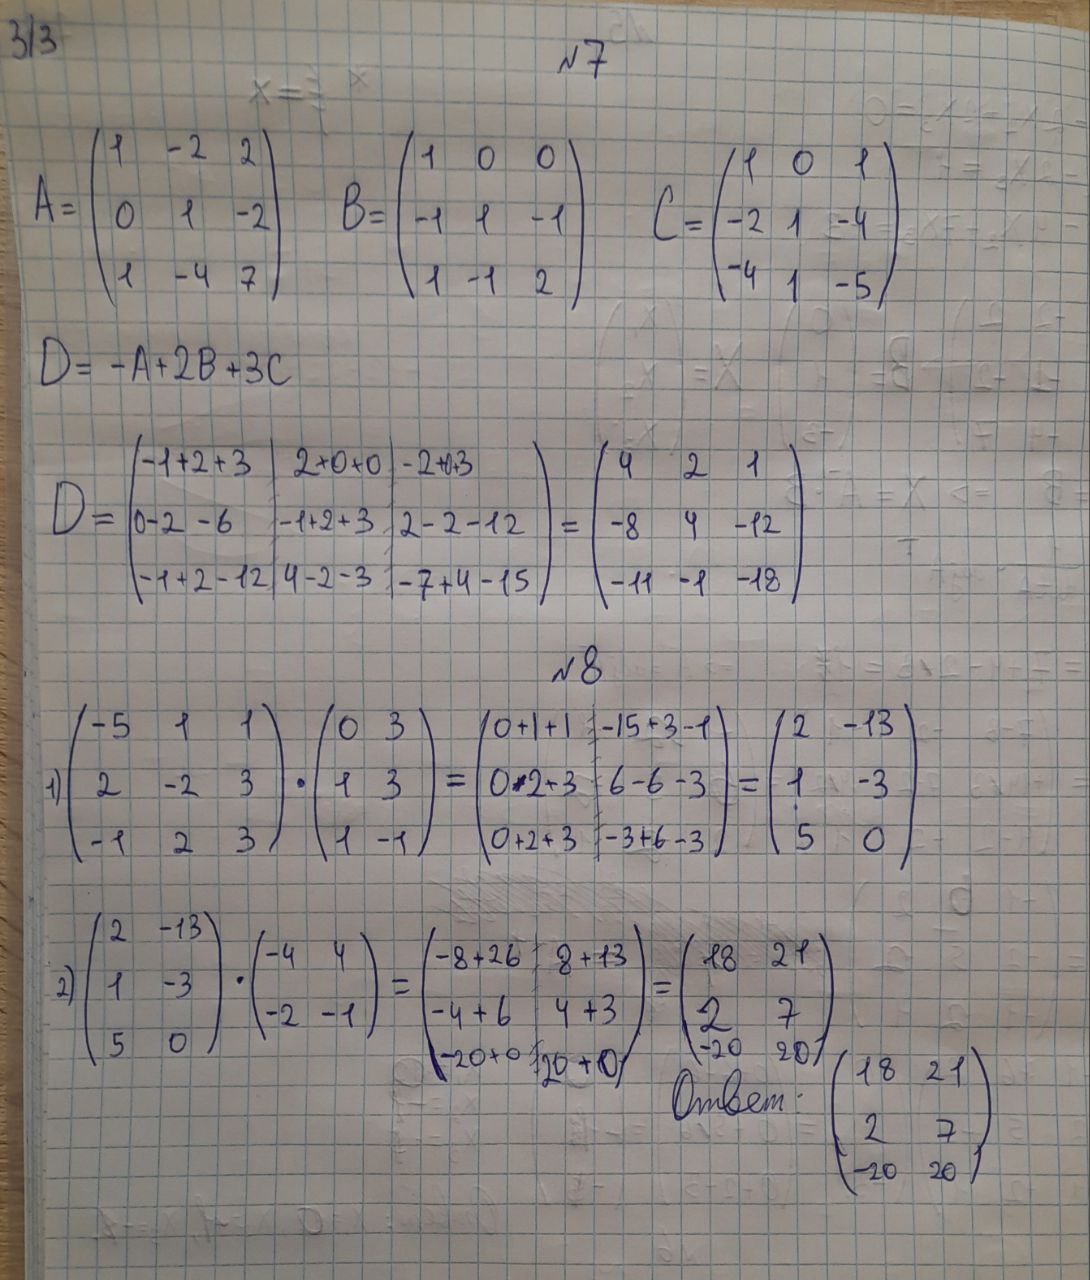 3/3
№7
A = (1 -2 2; 0 1 -2; 1 -4 7) B = (1 0 0; -1 1 -1; 1 -1 2) C = (1 0 1; -2 1 -4; -4 1 -5)
D = -A+2B+3C
D = (-1+2+3 | 2+0+0 | -2+0+3; 0-2-6 | -1+2+3 | 2-2-12; -1+2-12 | 4-2-3 | -7+4-15) = (4 2 1; -8 4 -12; -11 -1 -18)
№8
1) (-5 1 1; 2 -2 3; -1 2 3) · (0 3; 1 3; 1 -1) = (0+1+1 | -15+3-1; 0-2+3 | 6-6-3; 0+2+3 | -3+6-3) = (2 -13; 1 -3; 5 0)
2) (2 -13; 1 -3; 5 0) · (-4 4; -2 -1) = (-8+26 | 8+13; -4+6 | 4+3; -20+0 | 20+0) = (18 21; 2 7; -20 20)
Ответ: (18 21; 2 7; -20 20)